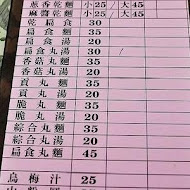 蔥香乾麵 小25 大45
麻醬乾麵 小25 大45
乾扁食 30
扁食麵 35
扁食湯 20
扁食丸湯 30
香菇丸麵 35
香菇丸湯 20
貢丸麵 35
貢丸湯 20
脆丸麵 35
脆丸湯 20
綜合丸麵 35
綜合丸湯 20
扁食丸麵 45
烏梅汁 25